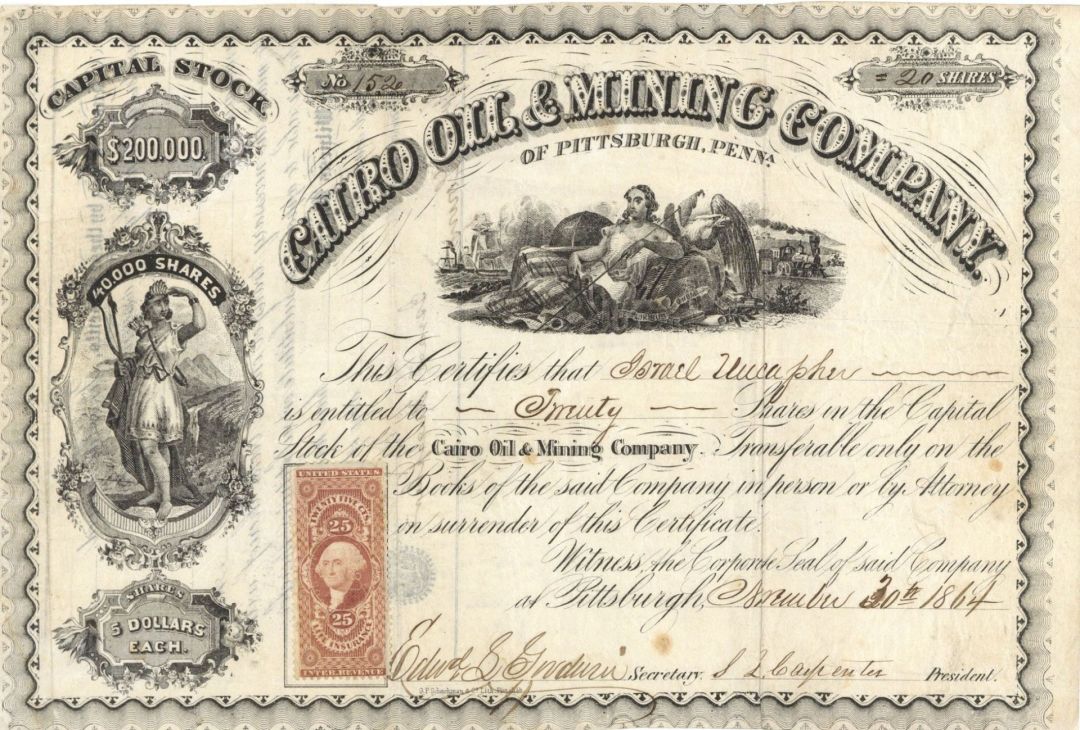 CAPITAL STOCK
$200.000.
40.000 SHARES
SHARES
5 DOLLARS
EACH.
No 1520
= 20 SHARES
CAIRO OIL & MINING COMPANY.
OF PITTSBURGH, PENNA
This Certifies that Israel Uncapher
is entitled to Twenty Shares in the Capital
Stock of the Cairo Oil & Mining Company. Transferable only on the
Books of the said Company in person or by Attorney
on surrender of this Certificate.
Witness, the Corporate Seal of said Company
at Pittsburgh, November 30th 1864
UNITED STATES
TWENTY FIVE CTS.
25
25
INSURANCE
INTER. REVENUE
Edwd S. Secretary. S L Carpenter President.